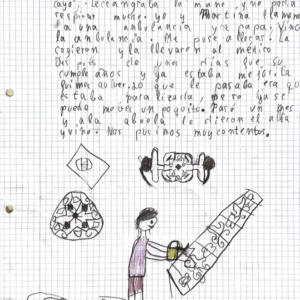 cayó, le sangraba la mano y no podía
respirar mucho. yo y Martina llamamos
a una ambulancia y a papá. Vino
la ambulancia. Me puse a llorar. La
cogieron y la llevaron al médico.
Después de unos días que su
cumple años y ya estaba mejor. La
quimos a ver. Lo que le pasaba era que
estaba paralizada, pero ya se
puede mover un poquito. Pasó un mes
y a la abuela le dieron el alta
y vino. Nos pusimos muy contentos.
H